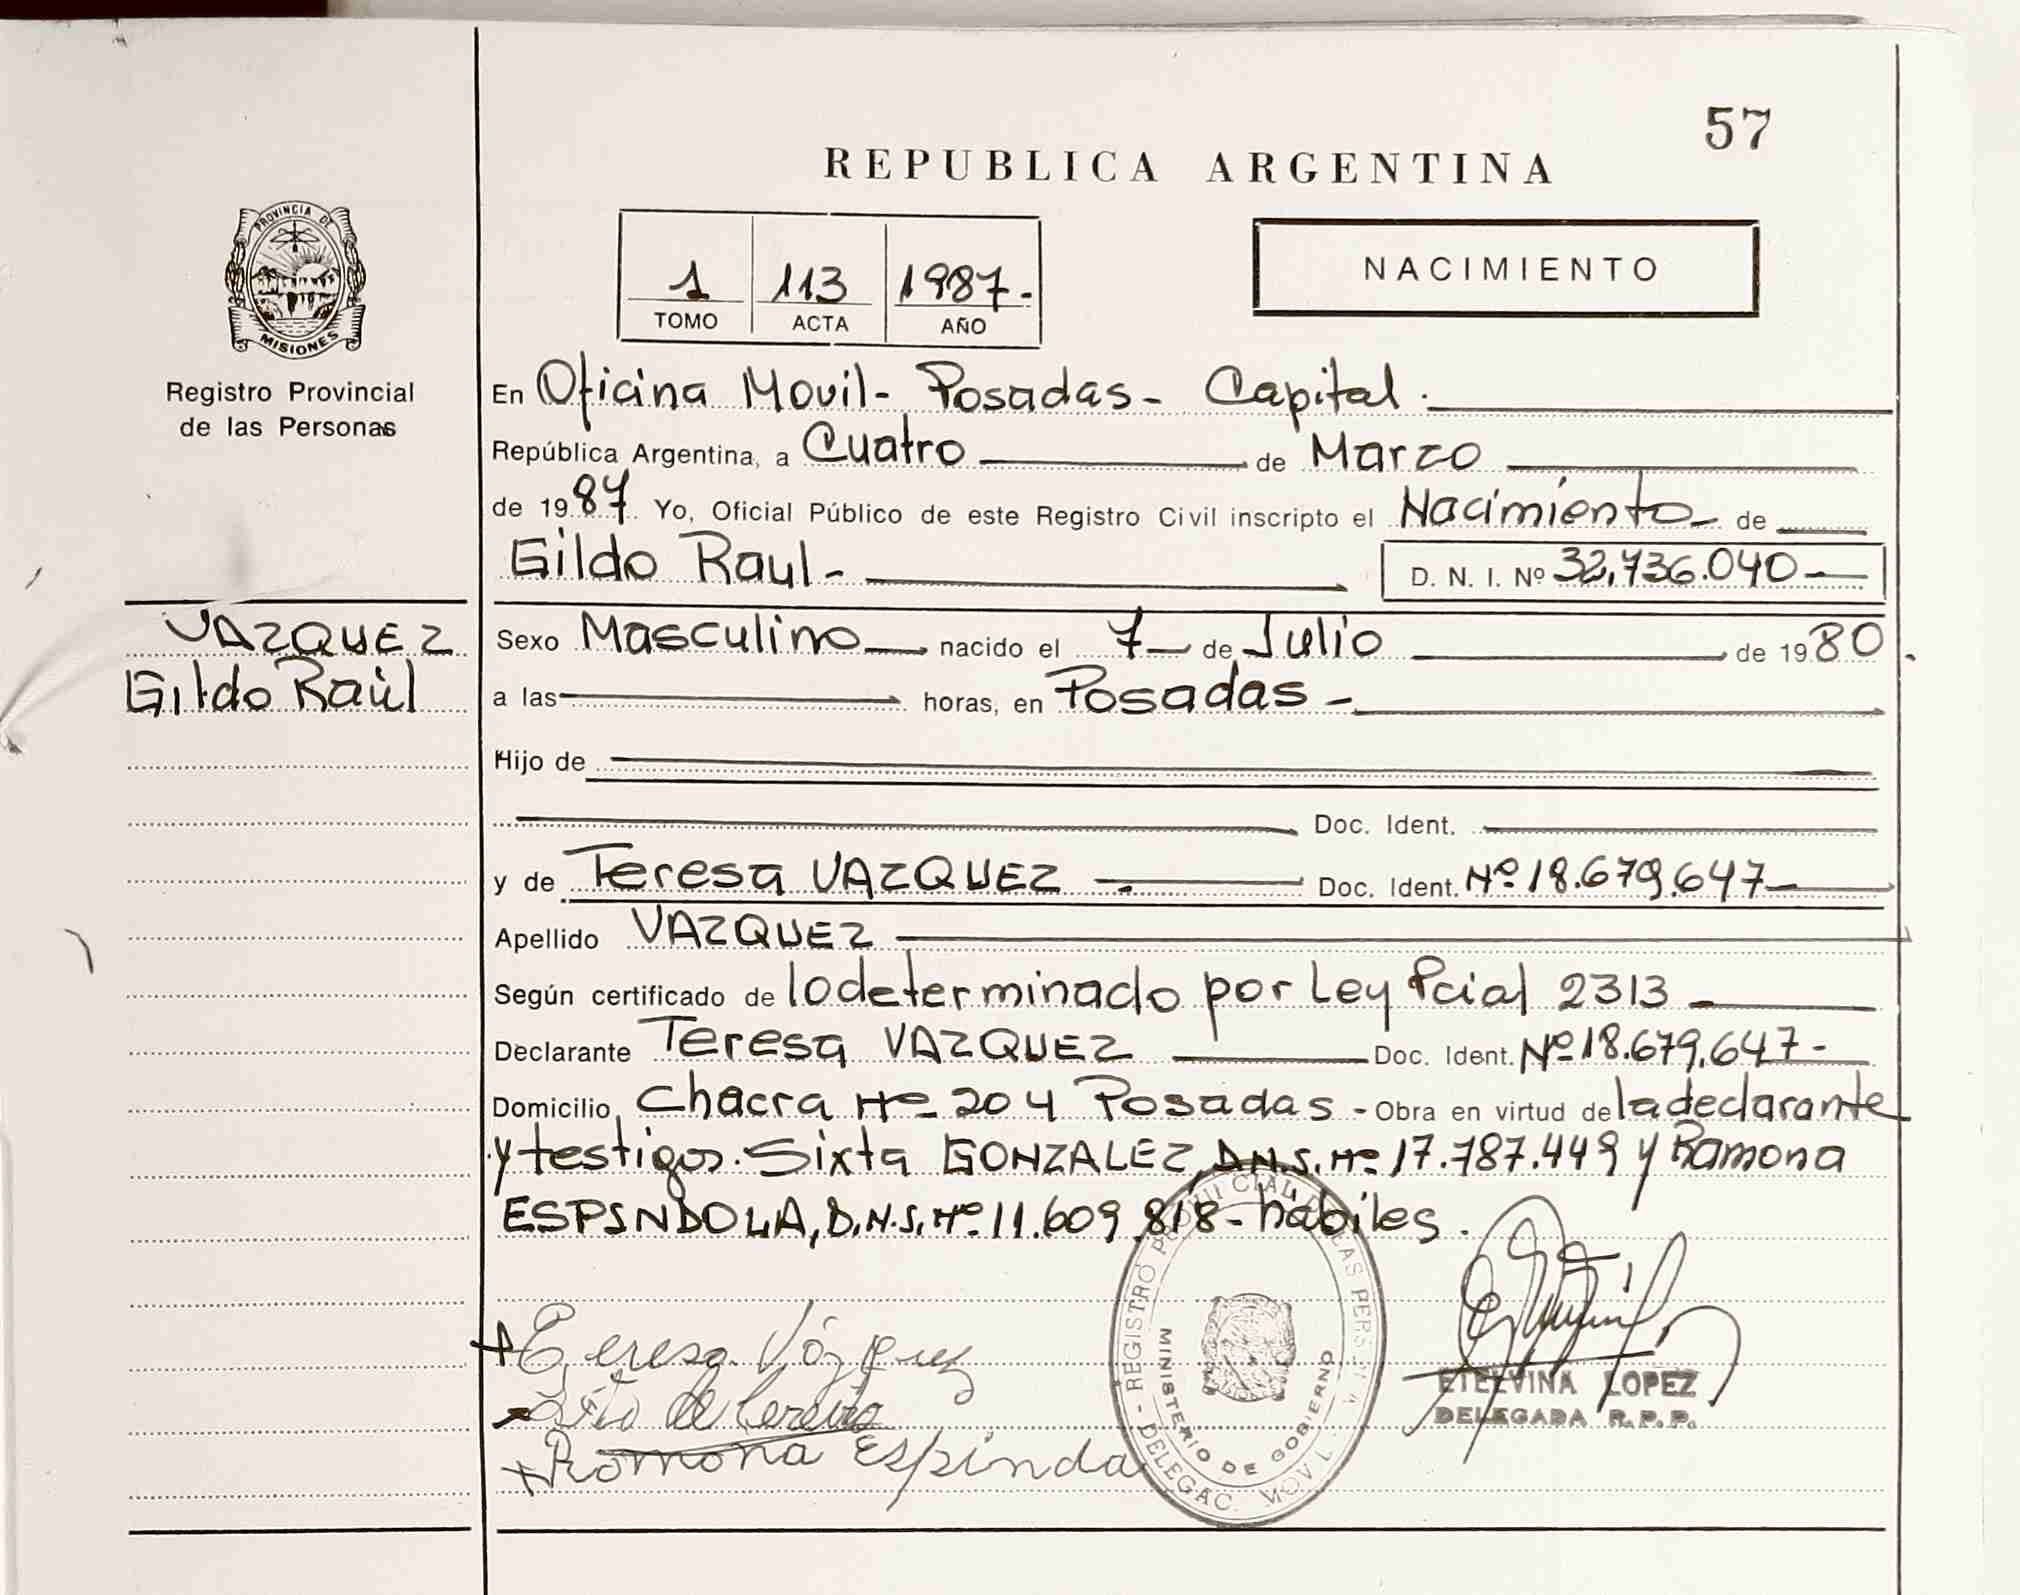 57
REPUBLICA ARGENTINA
PROVINCIA DE
MISIONES
Registro Provincial
de las Personas
1 113 1987.-
TOMO ACTA AÑO
NACIMIENTO
En Oficina Movil- Posadas- Capital.
República Argentina, a Cuatro de Marzo
de 1987 Yo, Oficial Público de este Registro Civil inscripto el Nacimiento- de
Gildo Raul- D. N. I. Nº 32.736.040-
VAZQUEZ
Gildo Raúl
Sexo Masculino nacido el 7 de Julio de 1980.
a las horas, en Posadas-
Hijo de
Doc. Ident.
y de Teresa VAZQUEZ Doc. Ident. Nº 18.679.647-
Apellido VAZQUEZ
Según certificado de lo determinado por Ley Pcial 2313-
Declarante Teresa VAZQUEZ Doc. Ident. Nº 18.679.647-
Domicilio Chacra Nº 204 Posadas- Obra en virtud de la declarante
y testigos. Sixta GONZALEZ, D.N.I. Nº 17.787.449 y Ramona
ESPINDOLA, D.N.I. Nº 11.609.818- hábiles.
Teresa Vázquez
Ramona Espinda
REGISTRO PROVINCIAL DE LAS PERS
MINISTERIO DE GOBIERNO
DELEGAC. MOVIL
ETELVINA LOPEZ
DELEGADA R.P.P.